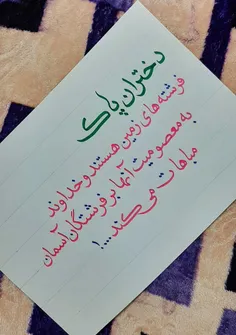 دختران پاک
فرشته های زمین هستند و خداوند
به معصومیت آنها بر فرشتگان آسمان
مباهات می کند....!